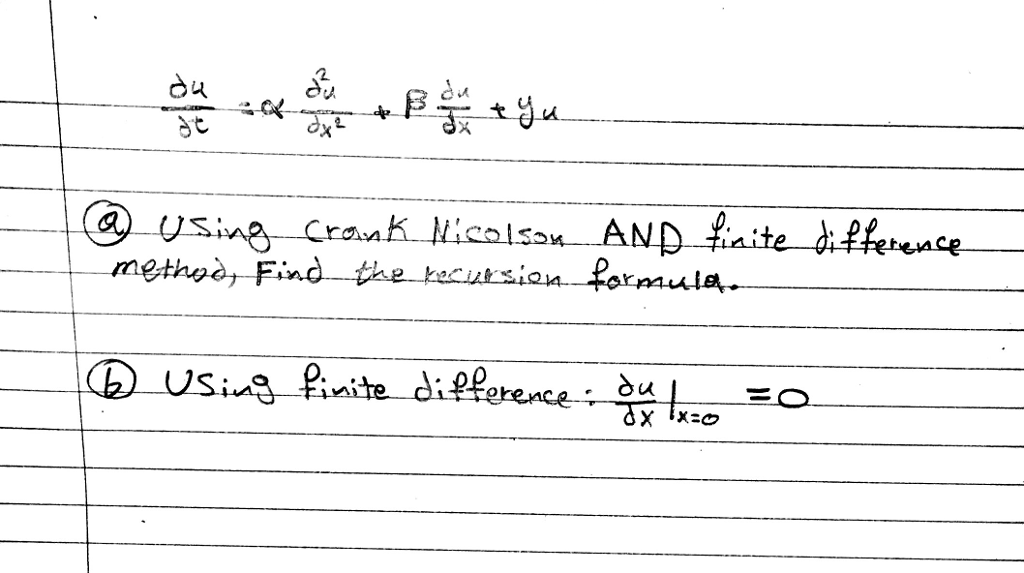 ∂u/∂t = α ∂²u/∂x² + β ∂u/∂x + yu
(a) Using Crank Nicolson AND finite difference
method, Find the recursion formula.
(b) Using finite difference : ∂u/∂x |x=0 =0